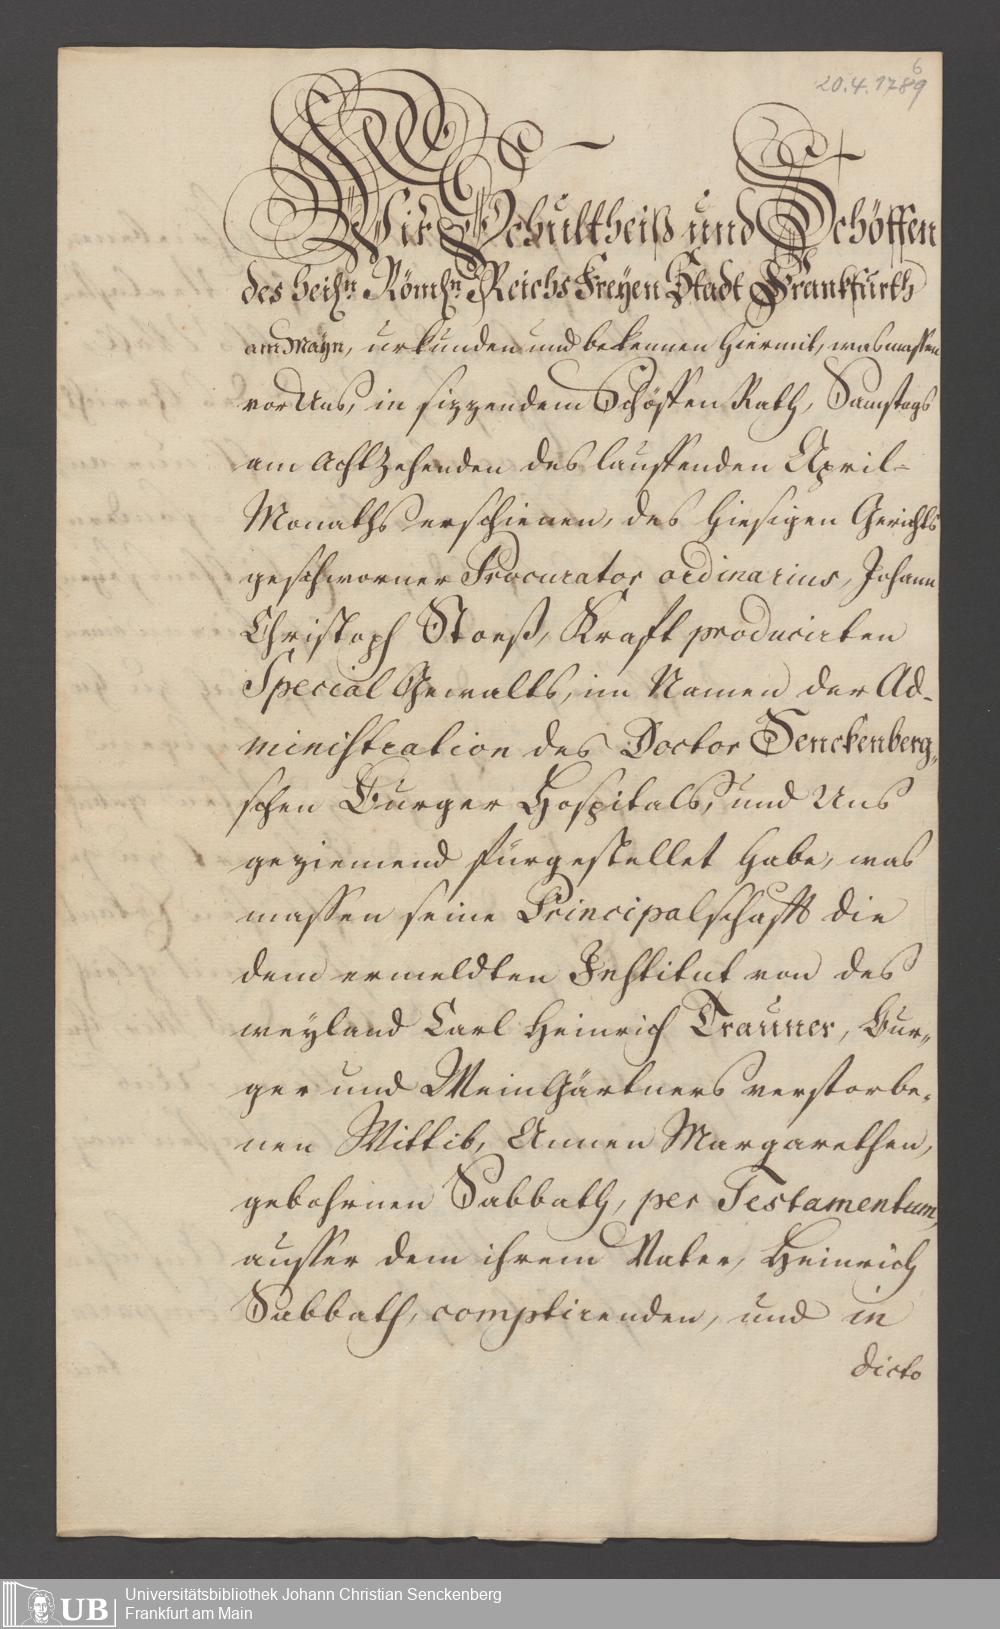 6
20.4.1789
Wir Schultheiß und Schöffen
des heil̃n Röml̃n Reichs Freyen Stadt Franckfurth
am Mayn, urkunden und bekennen hiermit, was massen
vor Uns, in sizzendem Schöffen Rath, Samstags
am Achtzehenden des lauffenden April-
Monaths erschienen, des hiesigen Gerichts
geschworner Procurator ordinarius, Johann
Christoph Stoeß, Kraft producirten
Special Gewalts, im Namen der Ad-
ministration des Doctor Senckenberg,,
schen Burger Hospitals, und Uns
geziemend fürgestellet habe, was
massen seine Principalschafft die
dem ermeldten Institut von des
weyland Carl Heinrich Trauner, Bur,,
ger und Wein Gärtners verstorbe,
nen Wittib, Annen Margarethen,
gebohrnen Sabbath, per Testamentum,
ausser dem ihrem Vater, Heinrich
Sabbath, comptirenden, und in
dicto
UB
Universitätsbibliothek Johann Christian Senckenberg
Frankfurt am Main